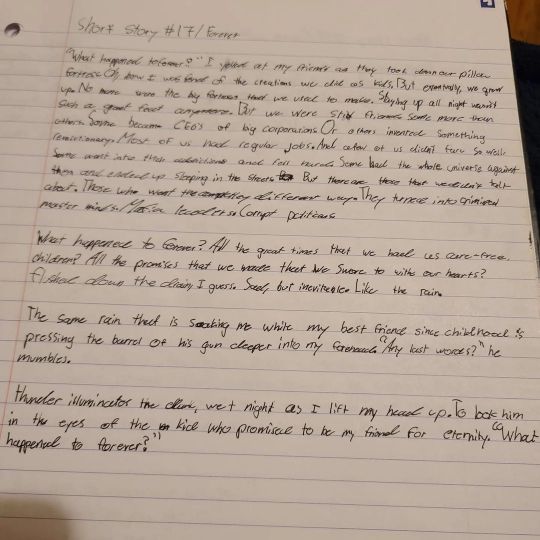 Short Story #17/Forever
"What happened to forever?" I yelled at my friends as they took down our pillow
fortress. Oh, how I was fond of the creations we did as kids. But eventually, we grew
up. No more were the big fortress that we used to make. Staying up all night wasn't
such a great feat anymore. But we were still friends some more than
others. Some became CEO's of big corporations. Or others invented something
revolutionary. Most of us had regular jobs. And a few of us didn't fare so well.
Some went into their addictions and fell hard. Some had the whole universe against
them and ended up sleeping in the streets. But there are those that we don't talk
about. Those who went the completely different way. They turned into criminal
master minds. Mafia leaders. Corrupt politicians.
What happened to forever? All the great times that we had as care-free
children? All the promises that we made that we swore to with our hearts?
Flushed down the drain, I guess. Sad, but inevitable. Like the rain.
The same rain that is soaking me while my best friend since childhood is
pressing the barrel of his gun deeper into my forehead. "Any last words?" he
mumbles.
thunder illuminates the dark, wet night as I lift my head up. To look him
in the eyes of the kid who promised to be my friend for eternity. "What
happened to forever?"